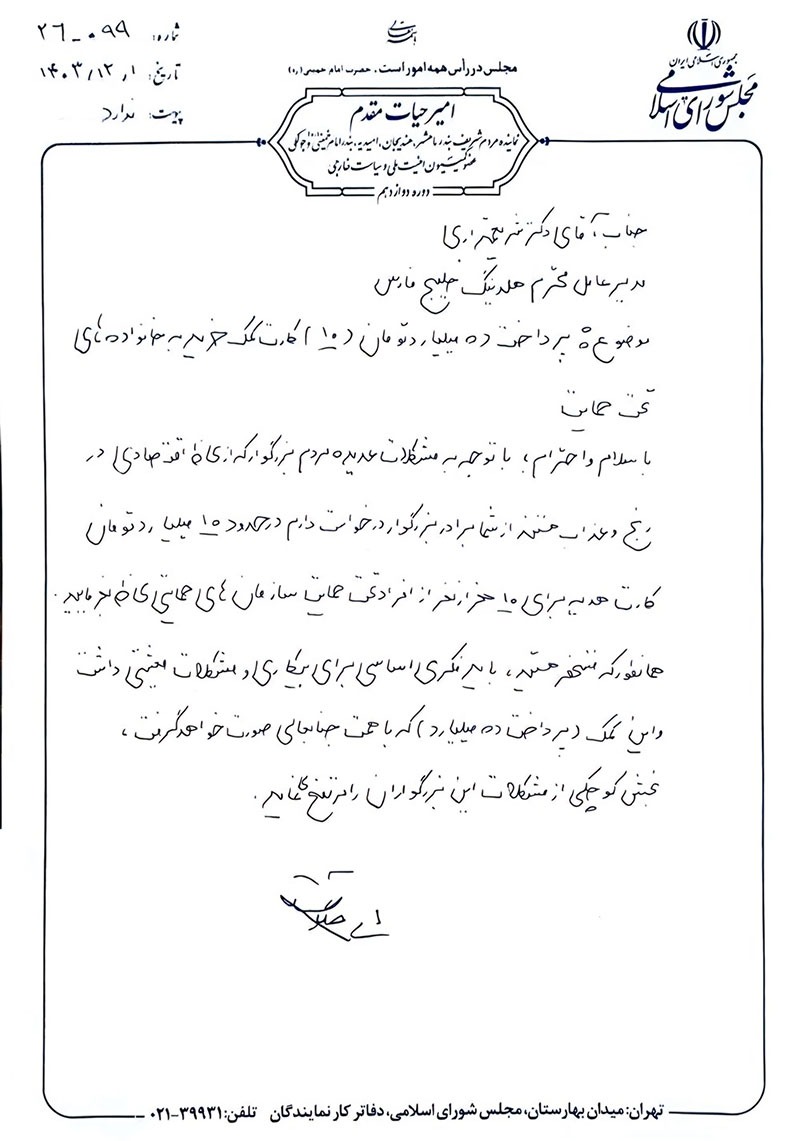 باسمه تعالی
جمهوری اسلامی ایران
مجلس شورای اسلامی
مجلس در رأس همه امور است. حضرت امام خمینی (ره)
شماره: ۰۹۹-۲۶
تاریخ: ۱۴۰۳/۱۲/۱
پیوست: ندارد
امیر حیات مقدم
نماینده مردم شریف بندر ماهشهر، هندیجان، امیدیه، بندر امام خمینی (ره) و جولکی
عضو کمیسیون امنیت ملی و سیاست خارجی
دوره دوازدهم
جناب آقای دکتر شریعتمداری
مدیر عامل محترم هلدینگ خلیج فارس
موضوع: پرداخت ده میلیارد تومان (۱۰) کارت کمک خرید به خانواده های
تحت حمایت
با سلام و احترام؛ با توجه به مشکلات عدیده مردم بزرگوار که از لحاظ اقتصادی در
رنج و عذاب هستند از شما برادر بزرگوار درخواست دارم در حدود ۱۰ میلیارد تومان
کارت هدیه برای ۱۰ هزار نفر از افراد تحت حمایت سازمان های حمایتی لحاظ بفرمایید.
همانطور که مستحضر هستید، باید فکری اساسی برای بیکاری و مشکلات معیشتی داشت
و این کمک (پرداخت ده میلیارد) که با همت جنابعالی صورت خواهد گرفت،
بخش کوچکی از مشکلات این بزرگواران را مرتفع می نماید.
تهران: میدان بهارستان، مجلس شورای اسلامی، دفاتر کار نمایندگان تلفن: ۳۹۹۳۱-۰۲۱